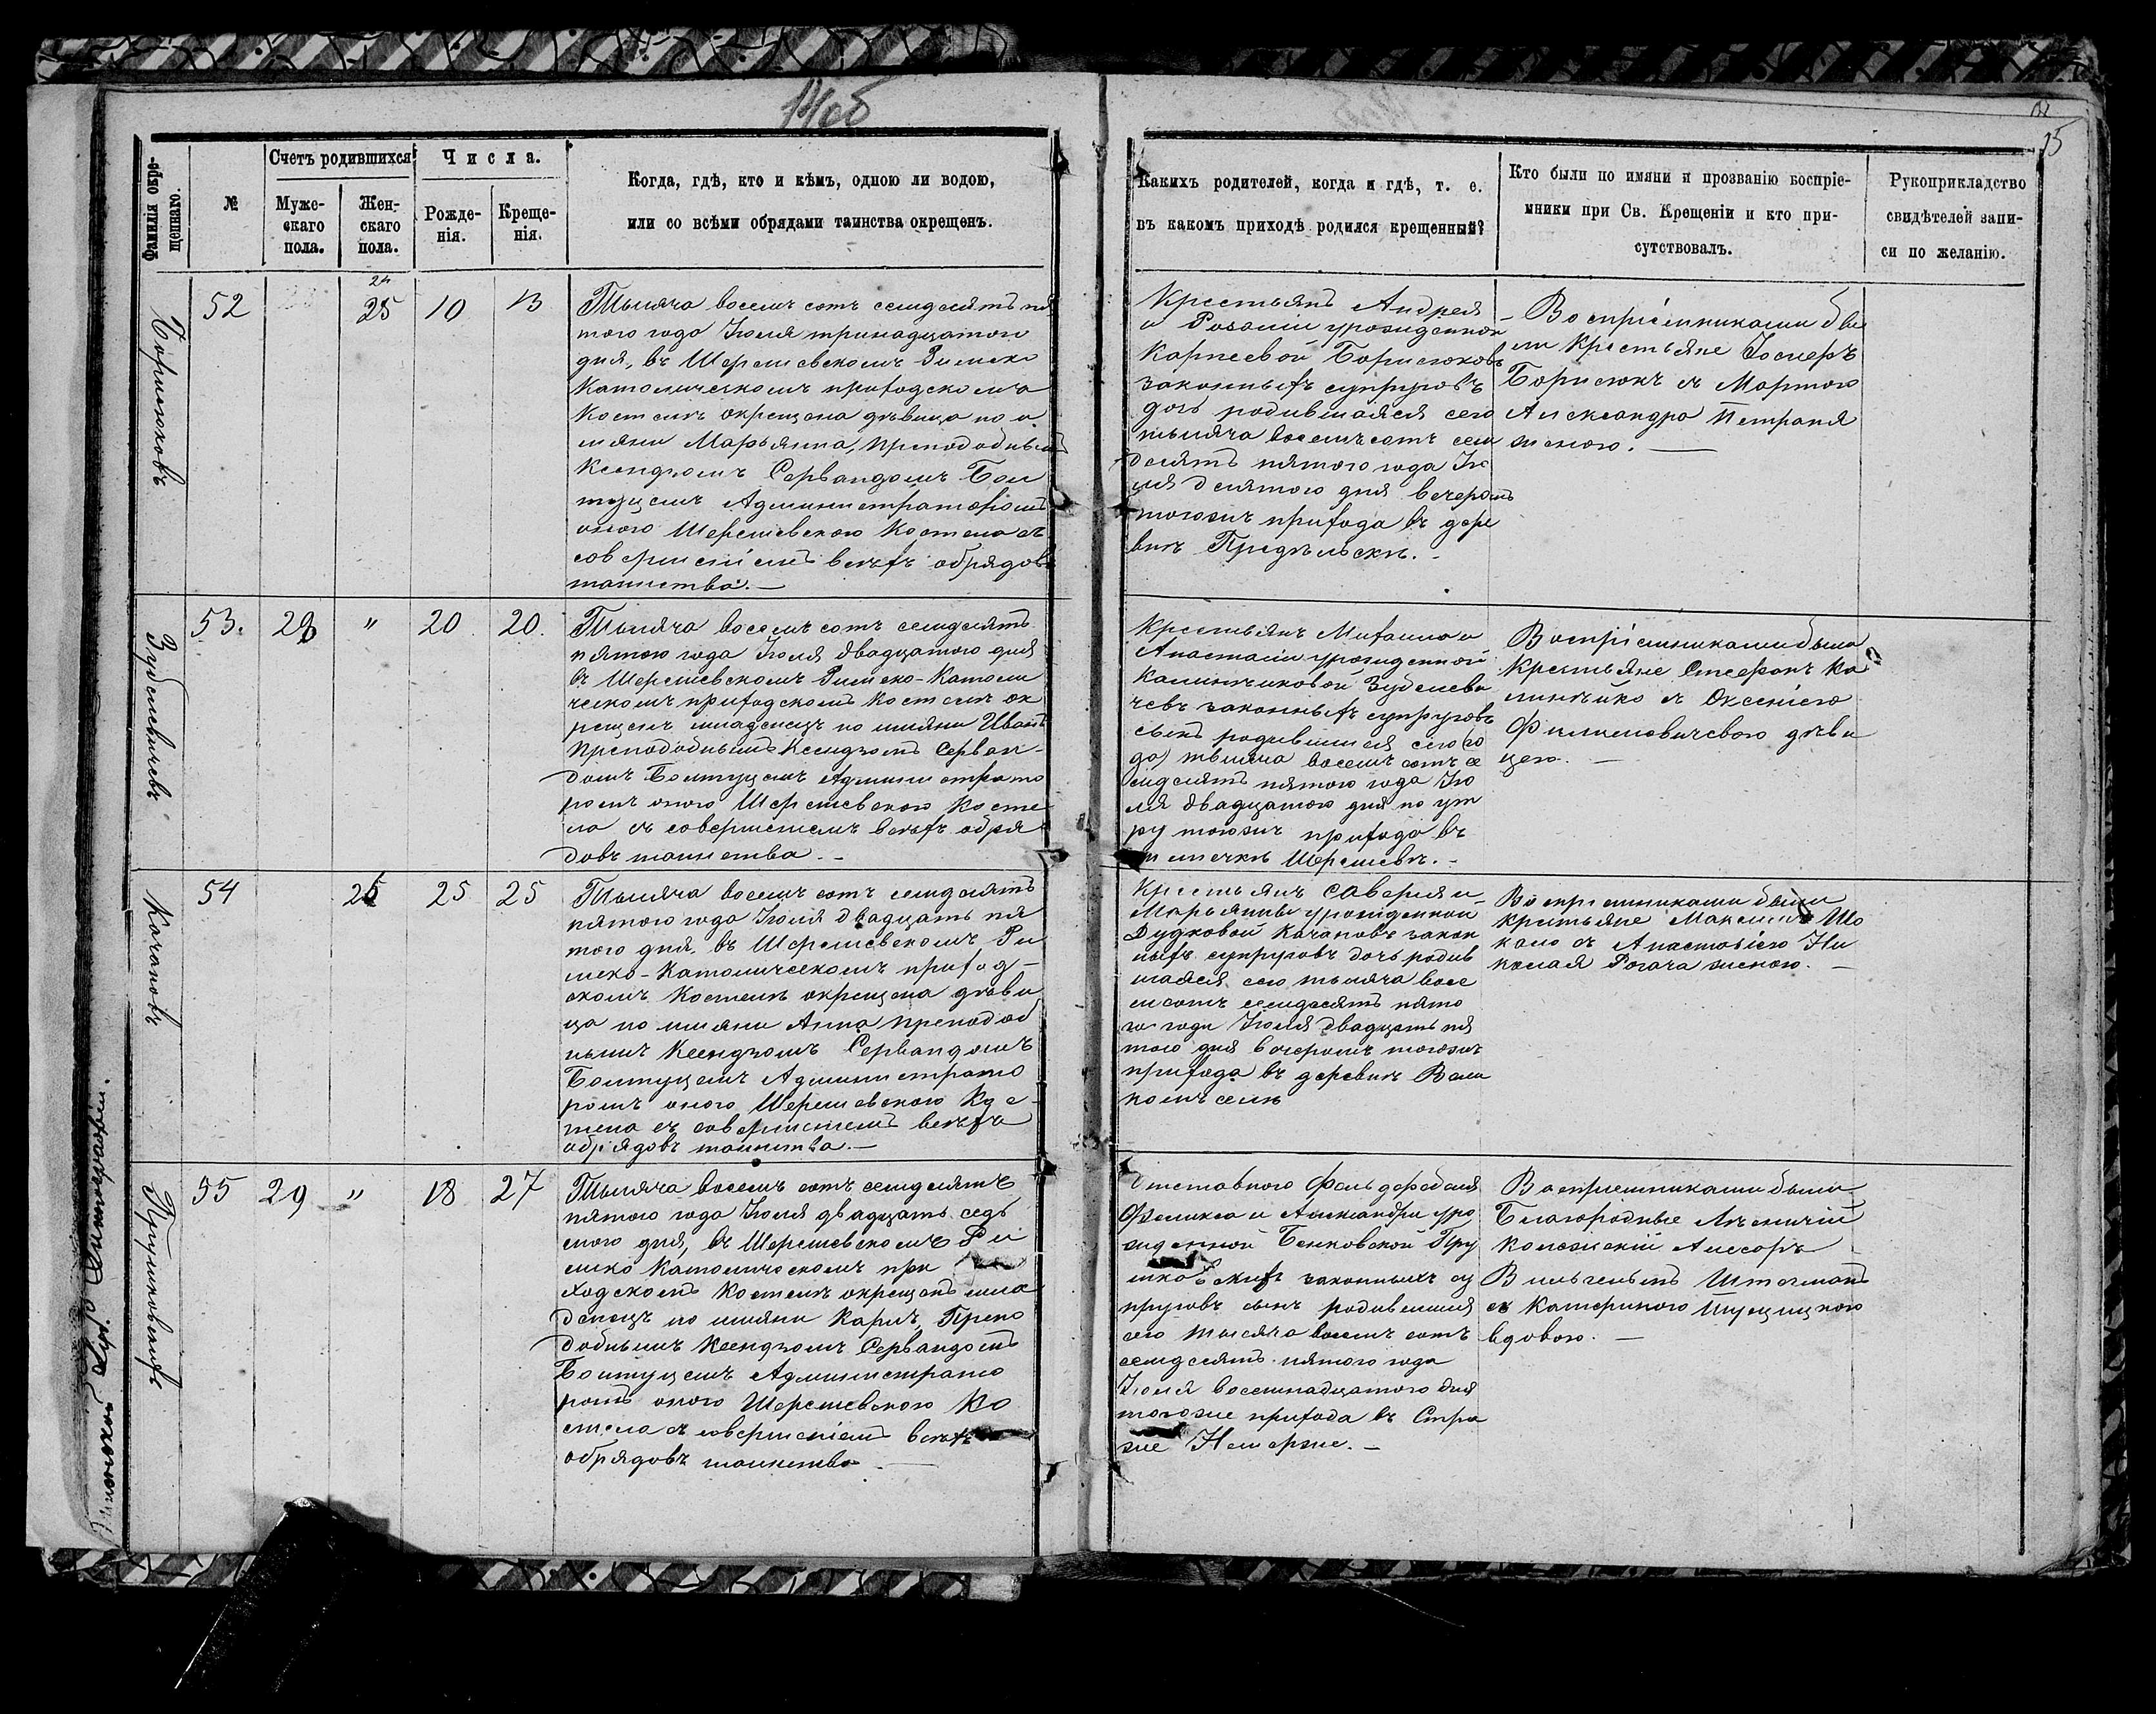 14об
15
Фамилія окре-
щеннаго.
№
Счетъ родившихся
Муже-
скаго
пола.
Жен-
скаго
пола.
Числа.
Рожде-
нія.
Креще-
нія.
Когда, гдѣ, кто и кѣмъ, одною ли водою,
или со всѣми обрядами таинства окрещенъ.
Какихъ родителей, когда и гдѣ, т. е.
въ какомъ приходѣ родился крещенный?
Кто были по имяни и прозванію воспріе-
мники при Св. Крещеніи и кто при-
сутствовалъ.
Рукоприкладство
свидѣтелей запи-
си по желанію.
Борисюковъ
52
24
25
10
13
Тысяча восемь сотъ семдесятъ пя
того года Іюля тринадцатого
дня, въ Шерешевскомъ Римско
Католическомъ приходскомъ
Костелѣ окрещена дѣвица по и
мяни Марьянна, преподобнымъ
Ксендзомъ Сервандомъ Бол
туцемъ Администраторомъ
оного Шерешевского Костела съ
совершеніемъ всѣхъ обрядовъ
таинства.—
Крестьянъ Андрея
и Розаліи урожденной
Карпеевой Борисюковъ
законныхъ супруговъ
дочь родившаяся сего
тысяча восемъ сотъ сем
десятъ пятого года Ію
ля десятого дня вечеромъ
тогожъ прихода въ дере
внѣ Придѣльскѣ.-
Воспріемниками бы
ли Крестьяне Іосифъ
Борисюкъ съ Мартою
Александра Петрапя
женою.—
Зубелевичевъ
53.
28
"
20
20.
Тысяча восемь сотъ семдесятъ
пятого года Іюля двадцатого дня
въ Шерешевскомъ Римско-Католи
ческомъ приходскомъ Костелѣ ок
рещенъ младенецъ по имяни Иванъ
Преподобнымъ Ксендзомъ Серван-
домъ Болтуцемъ Администрато
ромъ оного Шерешевского Косте
ла съ совершеніемъ всѣхъ обря
довъ таинства.-
Крестьянъ Михаила и
Анастасіи урожденной
Калинчиковой Зубелеви
чевъ законныхъ супруговъ
сынъ родившійся сего (го
да) тысяча восемь сотъ се
мдесятъ пятого года Ію
ля двадцатого дня по ут
ру тогожъ прихода въ
мѣстечкѣ Шерешевѣ.-
Воспріемниками были
Крестьяне Стефанъ Ка
линчико съ Оксеніею
Филиповичевою дѣви
цею.—
Качановъ
54
25
25
25
Тысяча восемь сотъ семдесятъ
пятого года Іюля двадцать пя
того дня, въ Шерешевскомъ Ри
мско-Католическомъ приход-
скомъ Костелѣ окрещена дѣви
ца по имяни Анна преподоб
нымъ Ксендзомъ Сервандомъ
Болтуцемъ Администрато
ромъ оного Шерешевского Ко с
тела съ совершеніемъ всѣхъ
обрядовъ таинства.—
Крестьянъ Саверія и
Марьянны урожденной
Дудковой Качановъ закон
ныхъ супруговъ дочь родив
шаяся сего тысяча восе
мъ сотъ семдесятъ пято
го года Іюля двадцать пя
того дня вечеромъ тогожъ
прихода въ деревнѣ Вели
комъ селѣ
Воспріемниками были
Крестьяне Максимъ Шо
кало съ Анастасіею Ни
колая Рогача женою.—
Прушковскихъ
55
29
"
18
27
Тысяча восемь сотъ семдесятъ
пятого года Іюля двадцать седь
мого дня, въ Шерешевскомъ Ри
мско Католическомъ при
ходскомъ Костелѣ окрещенъ мла
денецъ по имяни Карлъ, Препо
добнымъ Ксендзомъ Сервандомъ
Болтуцемъ Администрато
ромъ оного Шерешевского Ко
стела съ совершеніемъ всѣхъ
обрядовъ таинства.—
Отставного Фельдфебеля
Феликса и Александры уро
жденной Бенковской Пру
шковскихъ законныхъ су
пруговъ сынъ родившійся
сего тысяча восемь сотъ
семдесятъ пятого года
Іюля восемнадцатого дня
тогоже прихода въ Стра
же Немерже.-
Воспріемниками были
Благородные Лѣсничій
Колежскій Ассесоръ
Вильгельмъ
съ Катериною
вдовою.—